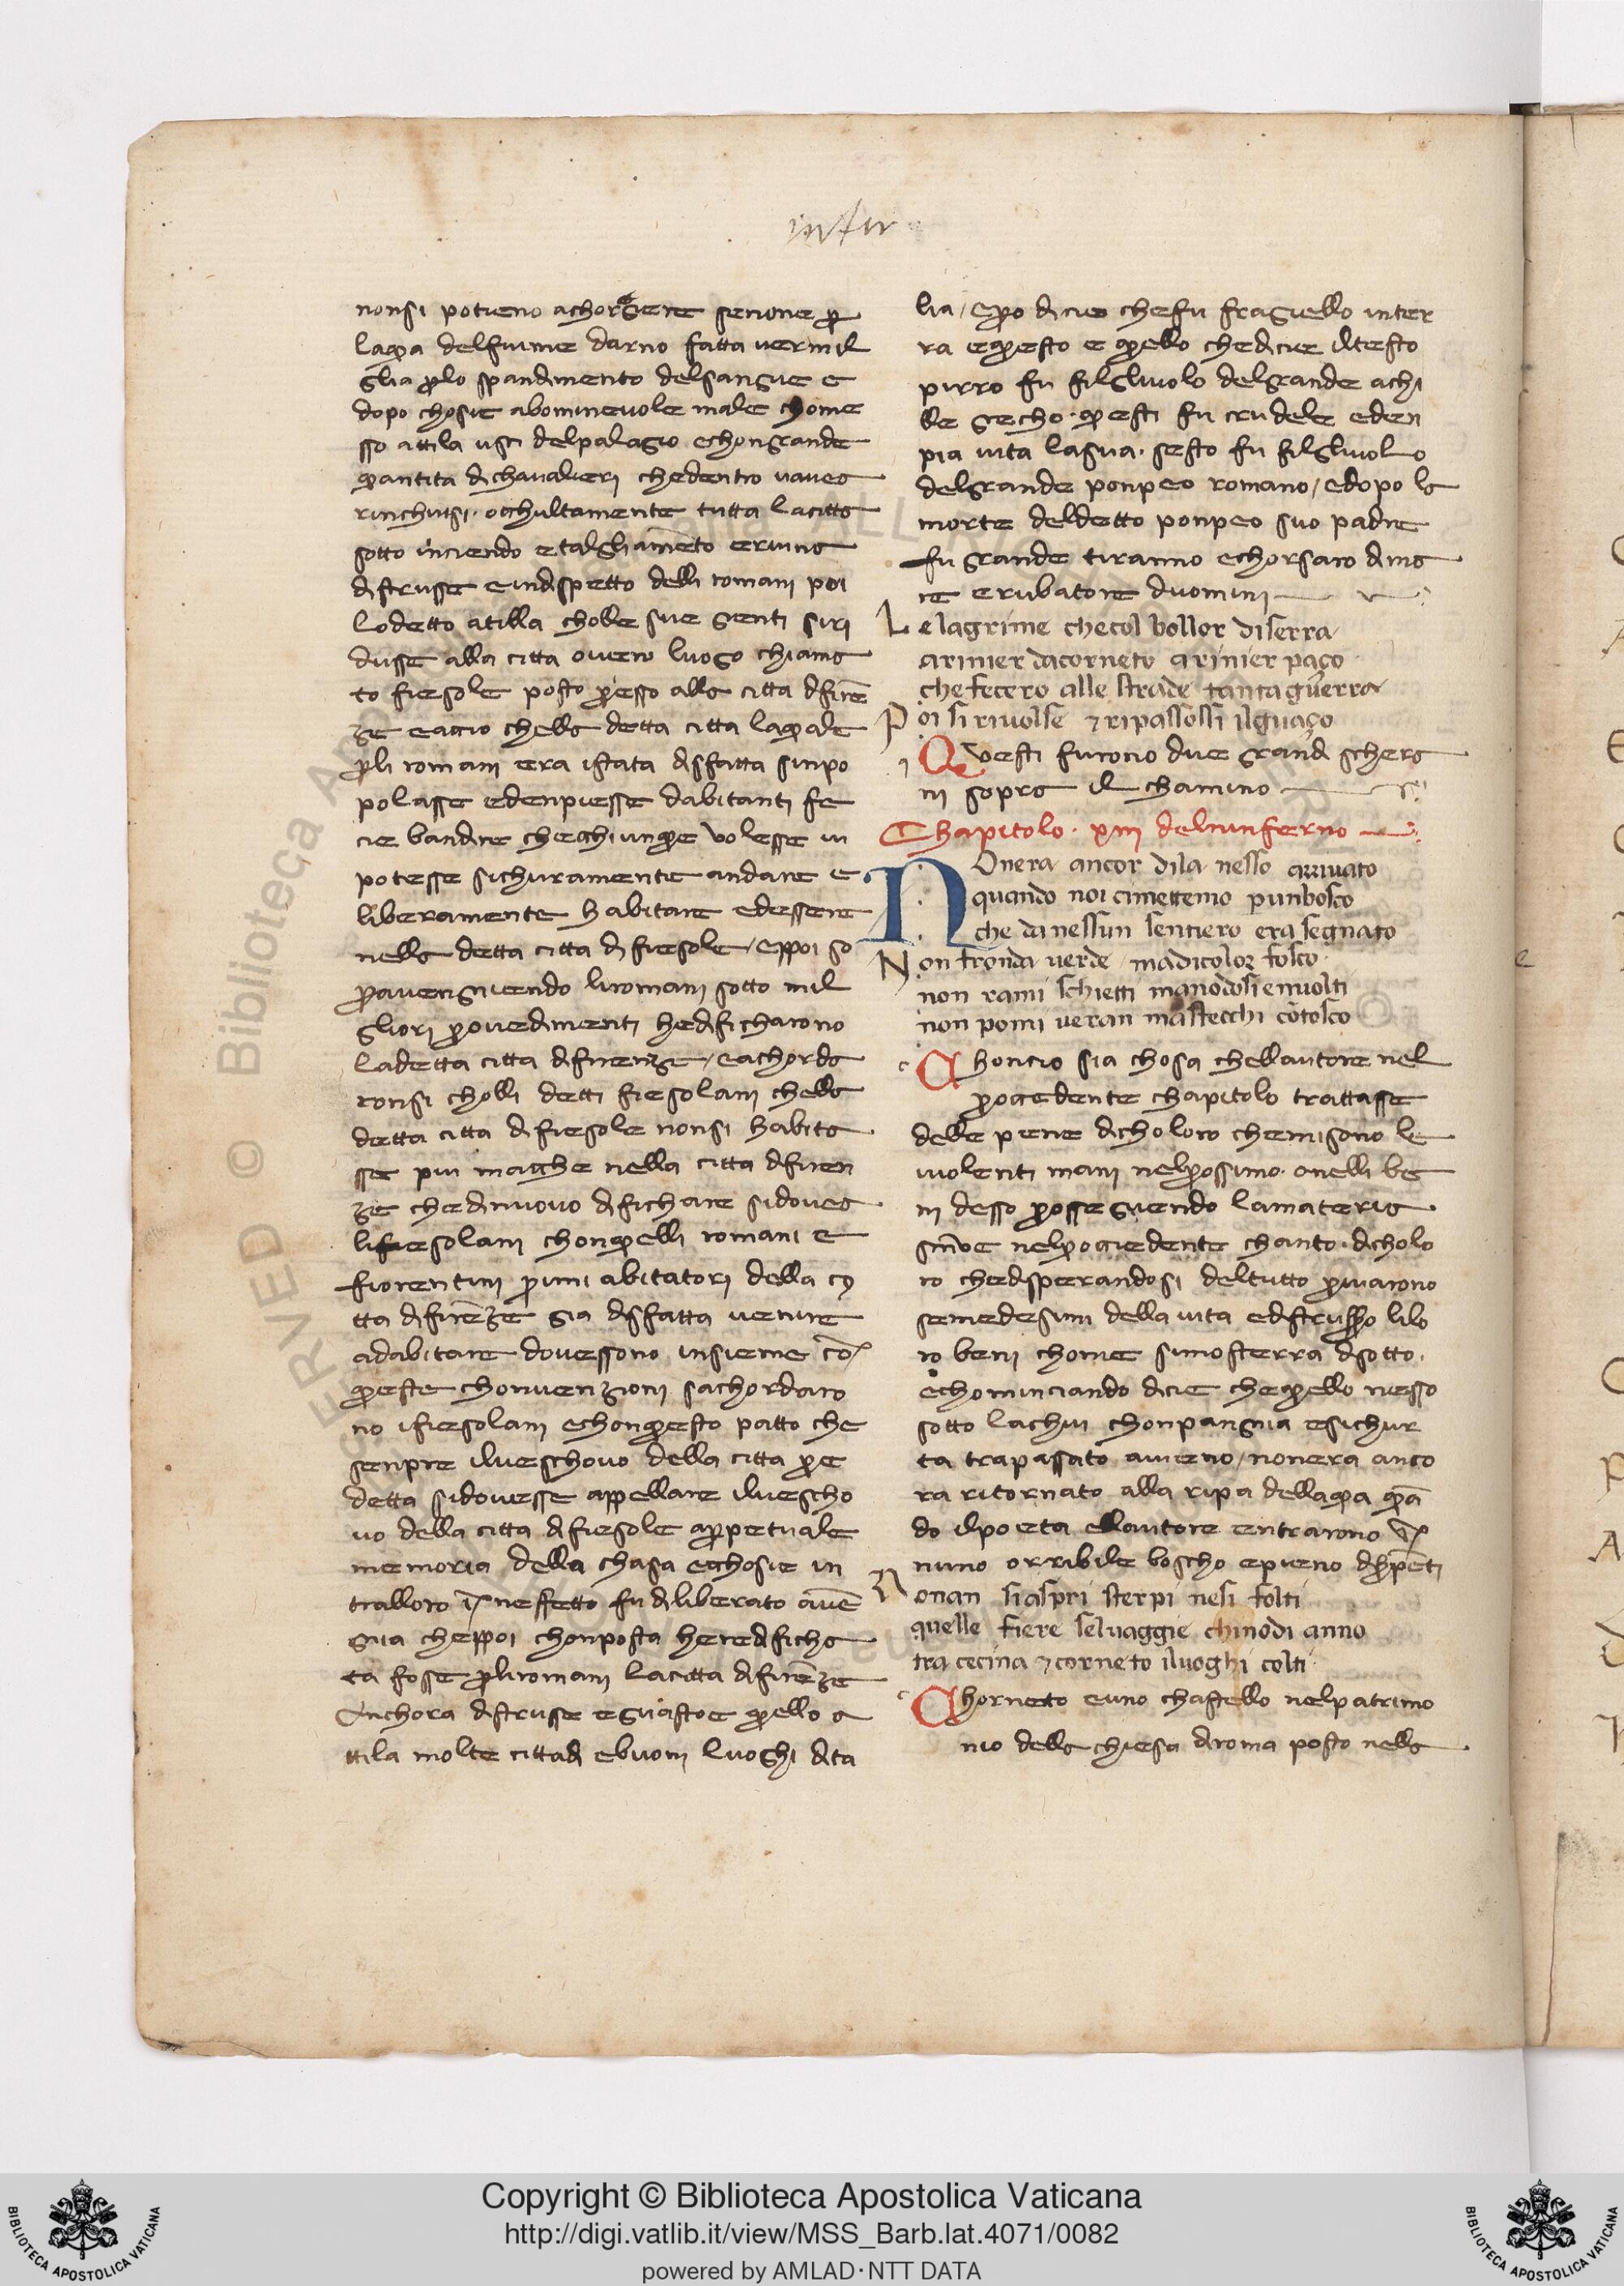 infer
nonsi potieno achorgiere senone p
laqua delfiume darno fatta vermil
glia plo spandimento delsangue e
dopo chosie abominevole male chome
sso attila usci delpalagio echongrande
quantita di chavalieri chedentro vavea
rinchiusi. ochultamente tutta lacitta
sotto inciendo etalgliamēto eruina
distrusse eindispetto delli romani poi
lodetto atilla cholle sue gienti siri
dusse alla citta overo luogo chiama
to fiesole posto presso alla citta difirē
ze eaccio chella detta citta laquale
pli romani era istata disfatta siripo
polasse edenpiesse dabitanti fe
cie bandire chechiunque volesse vi
potesse sichuramente andare e
liberamente habitare edessere
nella detta citta di fiesole / eppoi so
pravengniendo liromani sotto mil
gliori provedimenti hedificharono
ladetta citta difirenze / eachorda
ronsi cholli detti fiesolani chella
detta citta di fiesole nonsi habita
sse piu macche nella citta difiren
ze chedinuovo dificharе sidovea
lifiesolani chonquelli romani e
fiorentini primi abitatori della ci
tta difirēze gia disfatta venire
adabitare dovessono insieme co
queste chonvenzioni sachordaro
no ifiesolani echonquesto patto che
senpre ilveschovo della citta pre
detta sidovesse appellare ilvescho
vo della citta difiesole apperpetuale
memoria della chasa ecchosie in
tralloro neffetto fu diliberato avē
gnia cheppoi chonposta heredificha
ta fosse pliromani lacitta difirēze
Anchora distrusse eguastoe quello a
ttila molte cittadi ebuoni luoghi dita
lia / epo dicie chefu fragiello inter
ra equesto e quello chedicie iltesto
pirro fu filgliuolo delgrande achi
lle grecho. questi fu crudele eden
pia vita lasua. sesto fu filgliuolo
delgrande ponpeo romano / edopo la
morte deldetto ponpeo suo padre
fu grande tiranno echorsaro dima
re erubatore duomini
Le lagrime checol bollor diserra
arinier dacorneto arinier paço
chefecero alle strade tantaguerra
Poi si rivolse ⁊ ripassossi ilguaço
Questi furono due grandi schera
ni sopra il chamino
Chapitolo. xiii delninferno
Nonera ancor dila nesso arrivato
quando noi cimettemo punbosco
che danessun sentiero era segnato
Non fronda verde madicolor fosco
non rami schietti manodosienvolti
non pomi veran mastecchi cōtosco
Choncio sia chosa chellautore nel
preciedente chapitolo trattasse
delle piene dicholoro chemisono le
violenti mani nelprossimo. onelli be
ni desso prosseguendo lamateria
nelprociedente chanto. dicholo
ro chedisperandosi deltutto privarono
semedesimi della vita edistrusso liloro
ro beni chome simosterra disotto.
echominciando dicie chequello niesso
sotto lachui chonpangnia esichur
ta trapassato avieno / nonera anco
ra ritornato alla ripa dellaqua quā
do ilpoeta ellautore entrarono
nuno orribile boscho epieno
Nonan siaspri sterpi nesi folti
quelle fiere selvaggie chinodi anno
tra cecina ⁊ corneto iluoghi colti
Chorneto euno chastello nelpatrimo
nio della chiesa diroma posto nella
Copyright © Biblioteca Apostolica Vaticana
http://digi.vatlib.it/view/MSS_Barb.lat.4071/0082
powered by AMLAD·NTT DATA
BIBLIOTECA APOSTOLICA VATICANA
BIBLIOTECA APOSTOLICA VATICANA